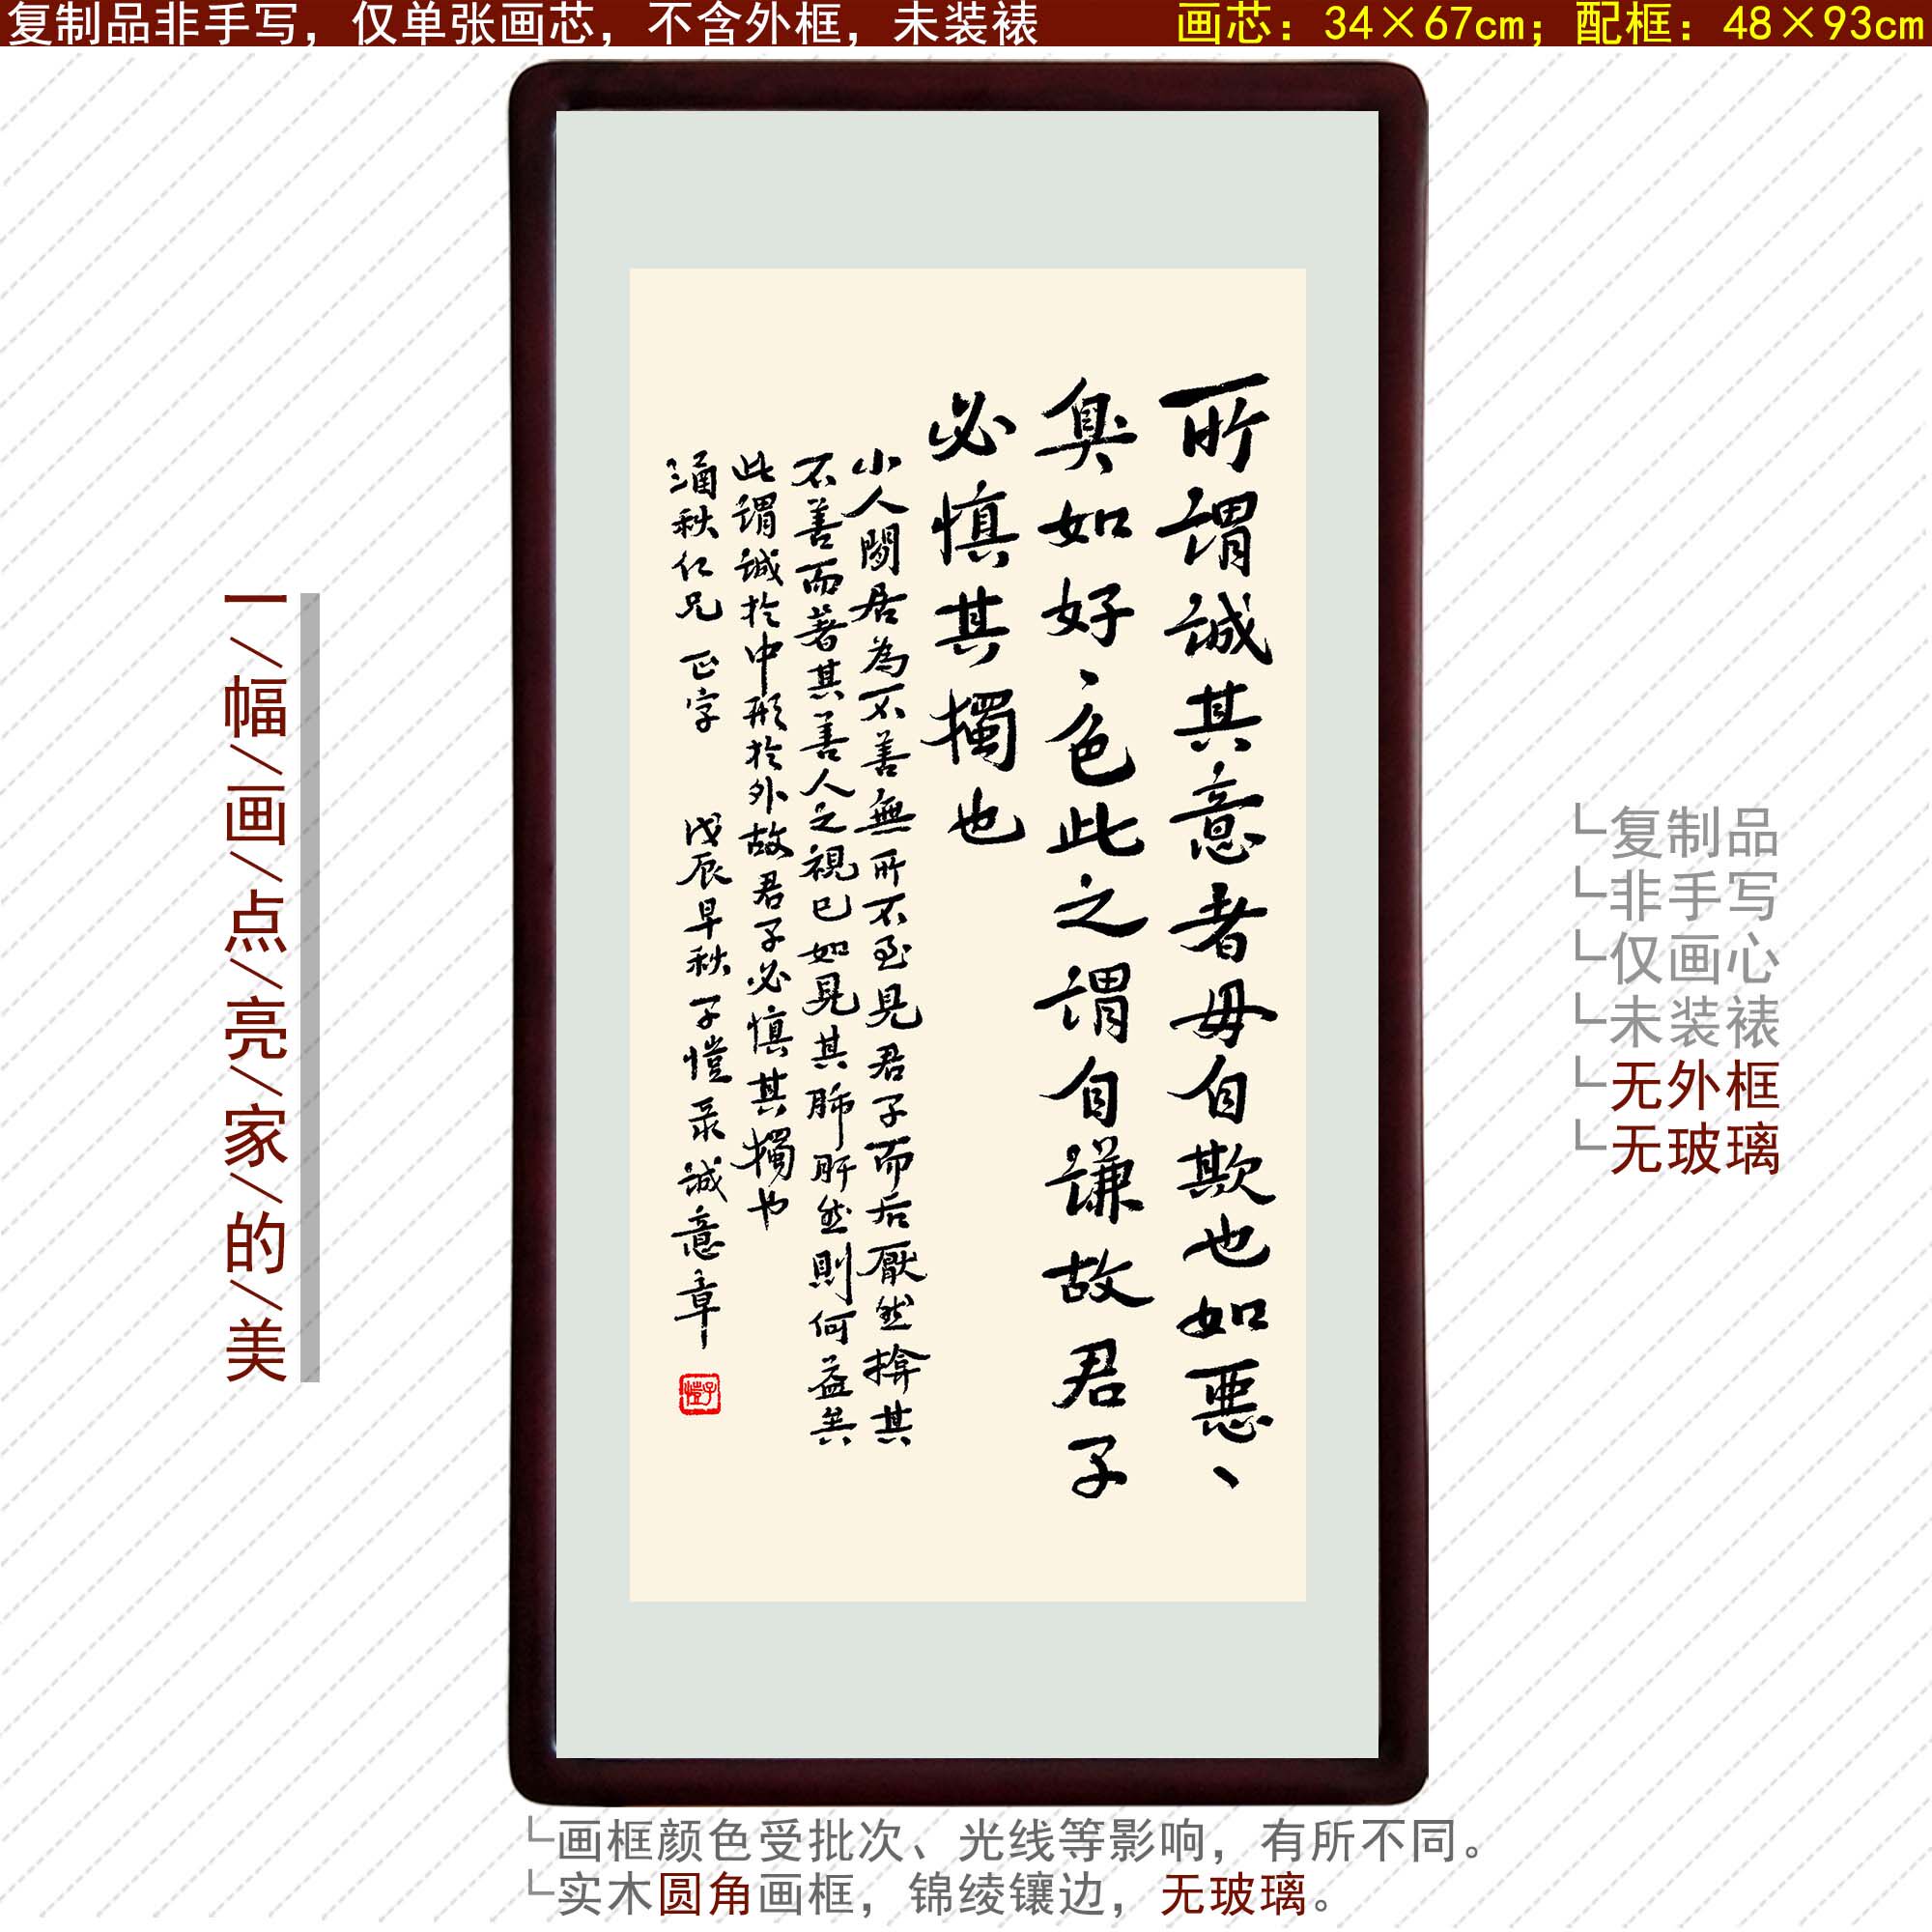 复制品非手写，仅单张画芯，不含外框，未装裱
画芯：34×67cm；配框：48×93cm
所谓誠其意者毋自欺也如惡、
臭如好、色此之谓自谦故君子
必慎其獨也
小人閒居為不善無所不至見君子而后厭然揜其
不善而著其善人之視己如見其肺肝然則何益矣
此謂誠於中形於外故君子必慎其獨也
涌秋仁兄 正字 戊辰早秋 子愷录 誠意章
子愷
一/幅/画/点/亮/家/的/美
复制品
非手写
仅画心
未装裱
无外框
无玻璃
画框颜色受批次、光线等影响，有所不同。
实木圆角画框，锦绫镶边，无玻璃。